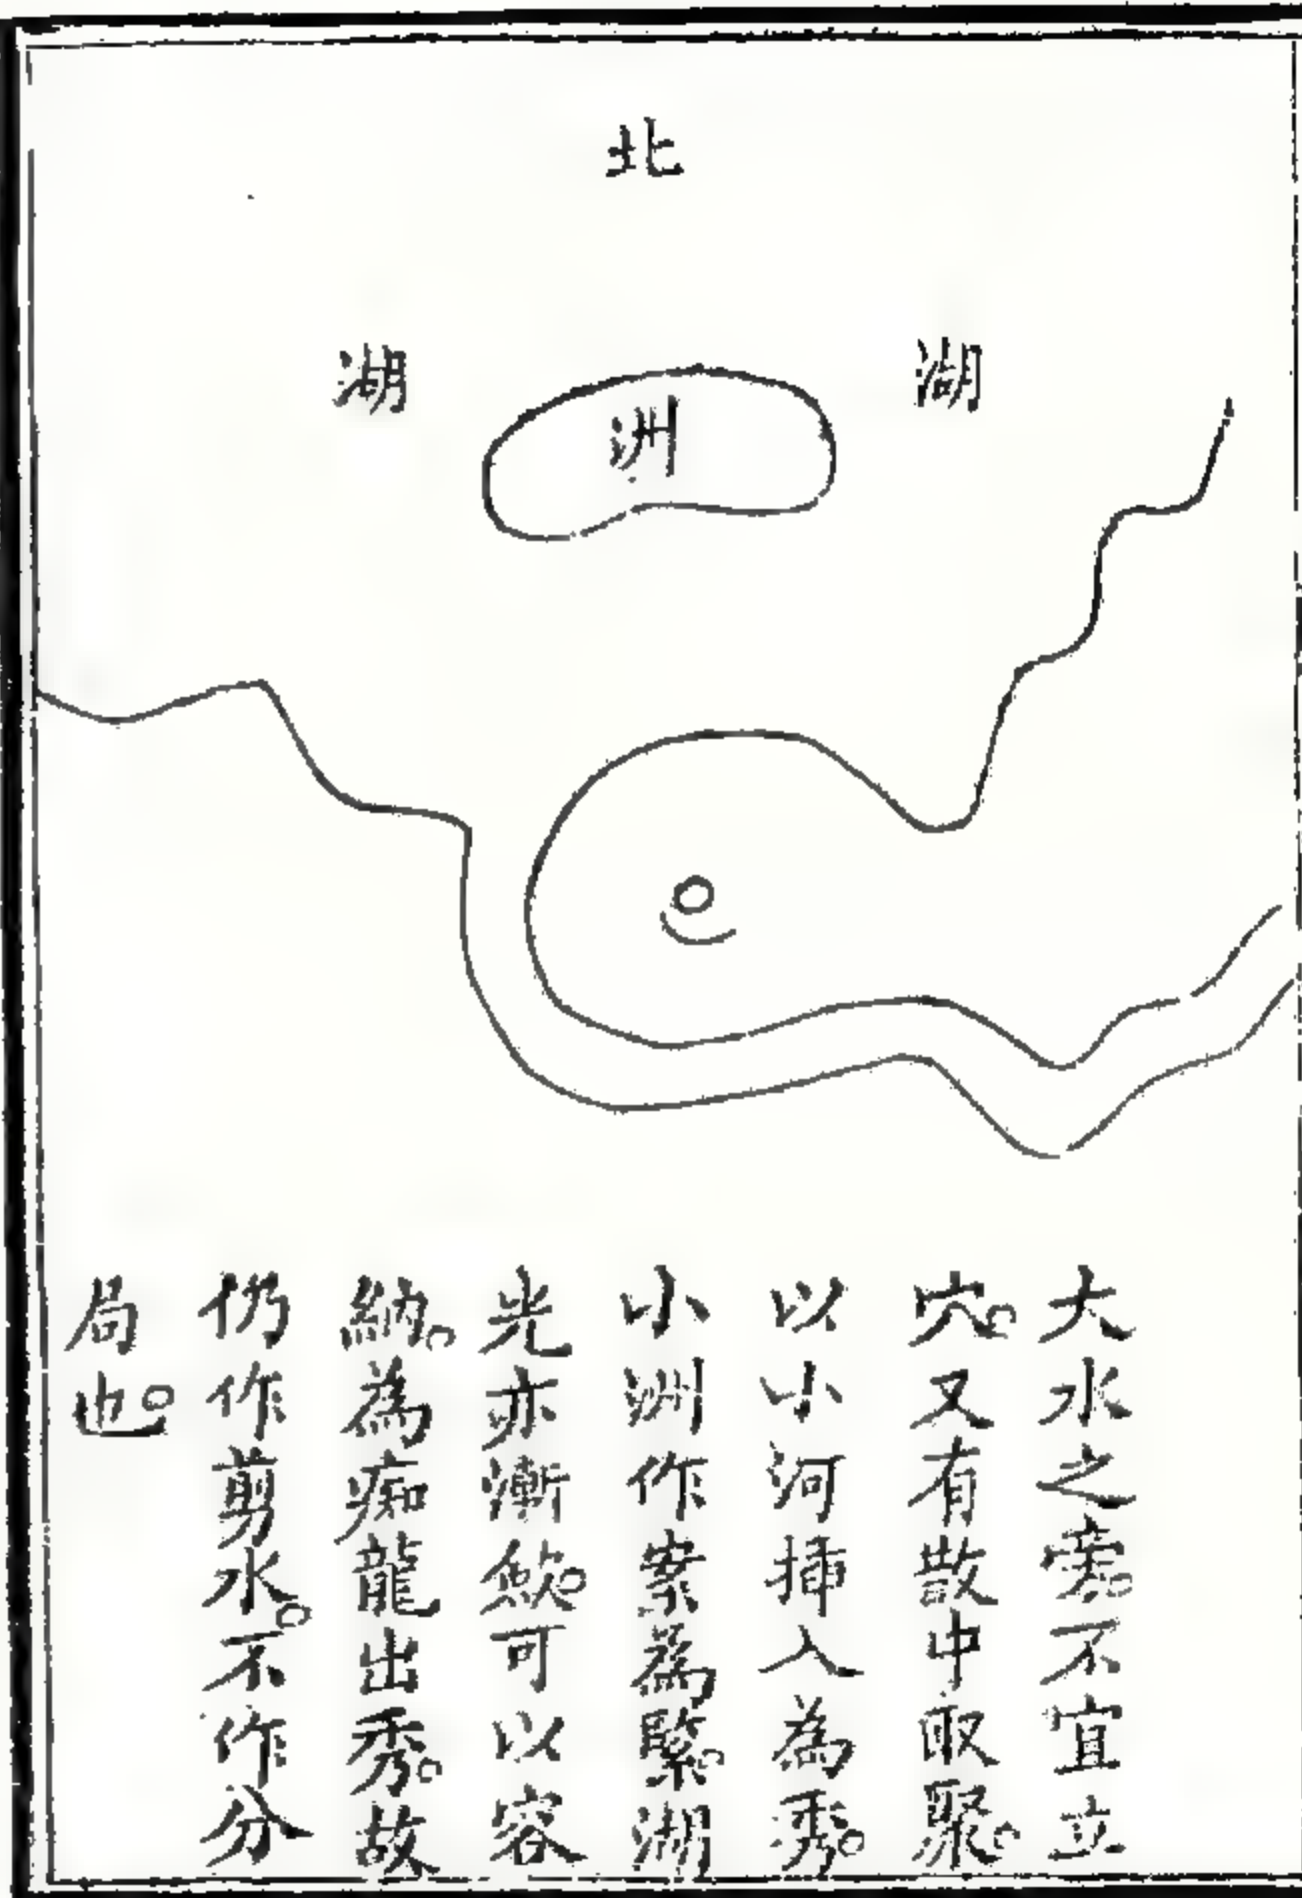 北
湖
洲
湖
大水之旁。不宜立
穴。又有散中取聚。
以小河揷入為秀。
小洲作案為緊。湖
光亦漸斂。可以容
納。為痴龍出秀。故
仍作剪水。不作分
局也。